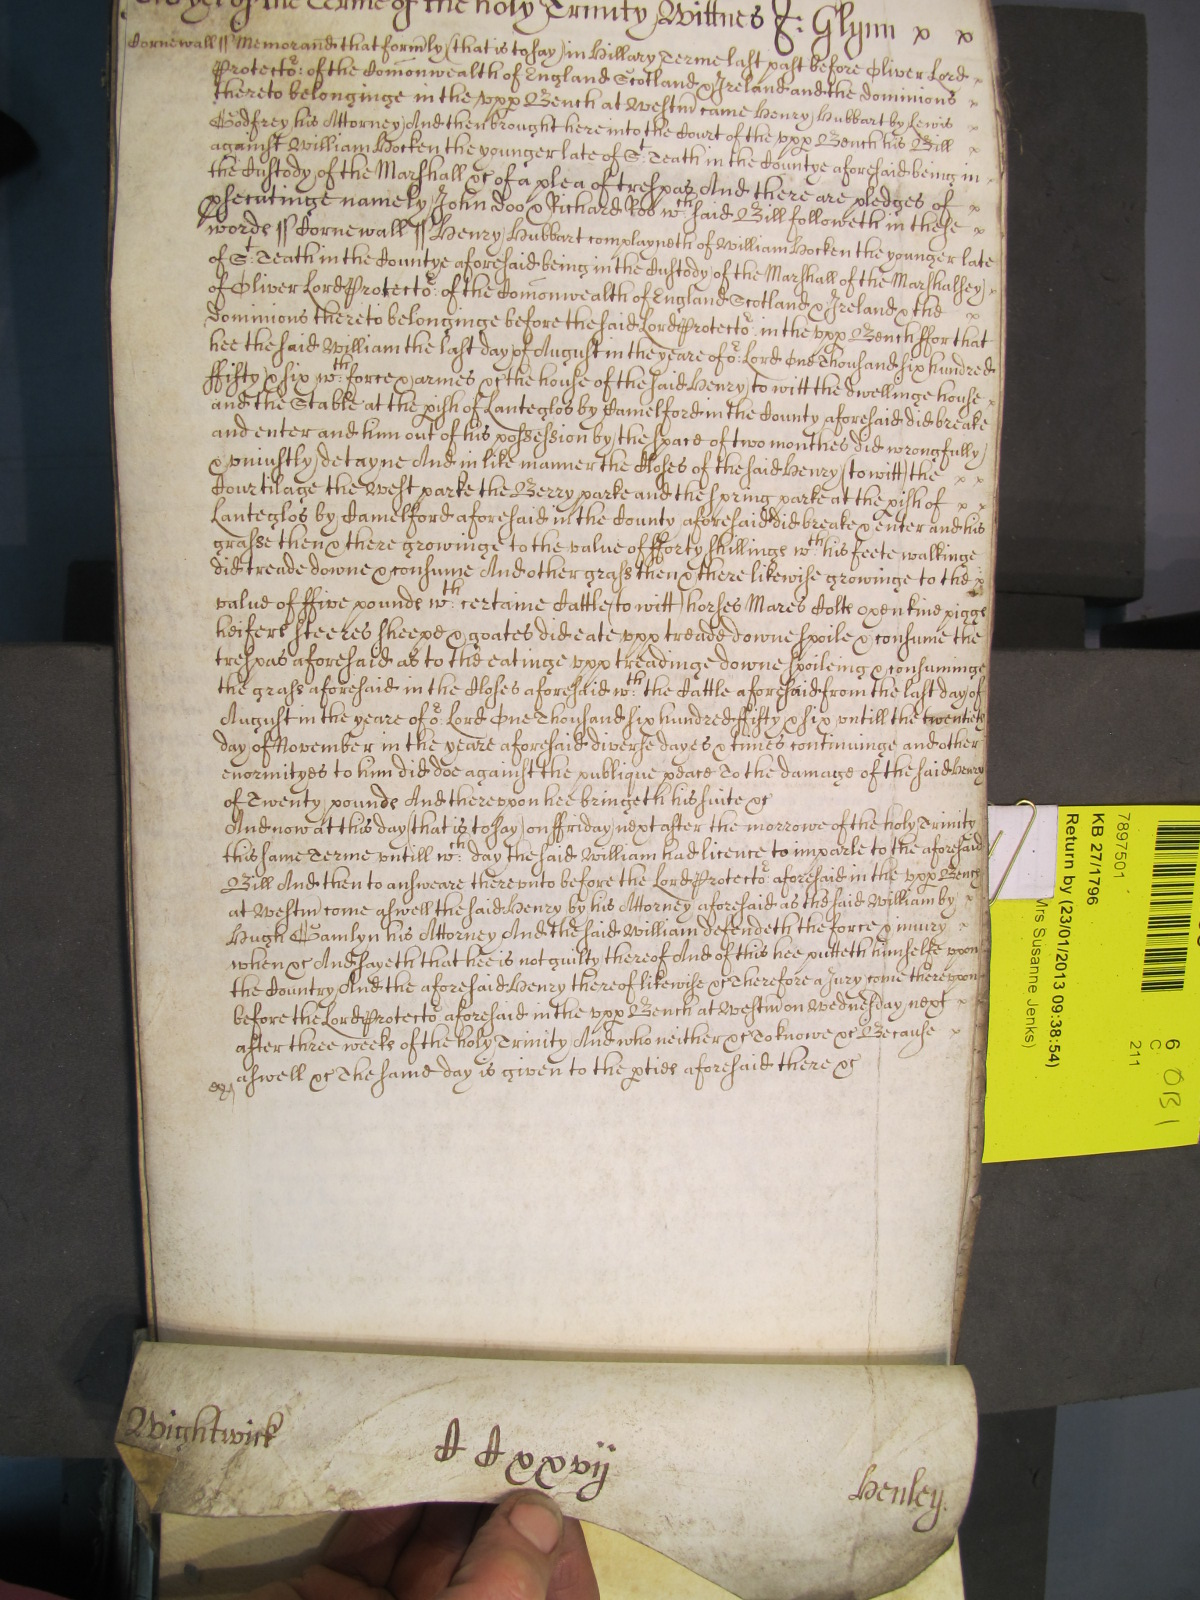 yet of the Terme of the holy Trinity Wittnes J: Glynn x x
Cornewall ss Memorand: that formly (that is to say) in Hillary Terme last past before Oliver Lord x
Protector: of the Comonwealth of England Scotland & Ireland and the dominions x
thereto belonginge in the vpp Bench at Westm came Henry Hubbart by Lewis x
Godfrey his Attorney And then brought here into the Court of the vpp Bench his Bill x
against William Hocken the younger late of St: Teath in the Countye aforesaid being in x
the Custody of the Marshall &c of a plea of trespas And there are pledges of x
psecutinge namely John Doo & Richard Roo wch said Bill followeth in these x
words ss Cornewall ss Henry Hubbart complayneth of William Hocken the younger late
of St: Teath in the Countye aforesaid being in the Custody of the Marshall of the Marshalsey x
of Oliver Lord Protector: of the Comonwealth of England Scotland & Ireland & the x x
dominions thereto belonginge before the said Lord Protector: in the vpp Bench ffor that
hee the said William the last day of August in the yeare of or: Lord One Thousand six hundred
ffifty & six wth: force & armes &c the house of the said Henry to witt the dwellinge house x
and the Stable at the pish of Lanteglos by Camelford in the County aforesaid did breake
and enter and him out of his possession by the space of two monthes did wrongfully
& vniustly detayne And in like manner the Closes of the said Henry (to witt) the x x
Courtilage the West parke the Berry parke and the spring parke at the pish of x x
Lanteglos by Camelford aforesaid in the County aforesaid did breake & enter and his
grasse then & there growinge to the value of fforty shillings wth: his feete walkinge
did treade downe & consume And other grass then & there likewise growinge to the x
value of ffive pounds wth: certaine Cattle (to witt) horses Mares Colts oxen kine piggs
heifers steeres sheepe & goates did eate vpp treade downe spoile & consume the
trespas aforesaid as to the eatinge vpp treadinge downe spoileing & consuminge
the grass aforesaid in the Closes aforesaid wth: the Cattle aforesaid from the last day of
August in the yeare of or: Lord One Thousand six hundred ffifty & six vntill the twentieth
day of November in the yeare aforesaid diverse dayes & times continuinge and other
enormityes to him did doe against the publique peace To the damage of the said Henry
of Twenty pounds And therevpon hee bringeth his suite &c
And now at this day (that is to say) on ffriday next after the morrowe of the holy Trinity
this same Terme vntill wch: day the said William had licence to imparle to the aforesaid
Bill And then to answeare therevnto before the Lord Protector: aforesaid in the vpp Bench
at Westm come aswell the said Henry by his Attorney aforesaid as the said William by x
Hugh Gamlyn his Attorney And the said William defendeth the force & iniury x
when &c And sayeth that hee is not guilty thereof And of this hee putteth himselfe vpon
the Country And the aforesaid Henry thereof likewise &c Therefore a Jury come therevpon
before the Lord Protector: aforesaid in the vpp Bench at Westm on Wednesday next x
after three weeks of the holy Trinity And who neither &c To knowe &c Because x
aswell &c The same day is given to the pties aforesaid there &c
Wightwick
C C xxvij
Henley.
7897501
KB 27/1796
Return by (23/01/2013 09:38:54)
Mrs Susanne Jenks)
6
C
211
OB 1